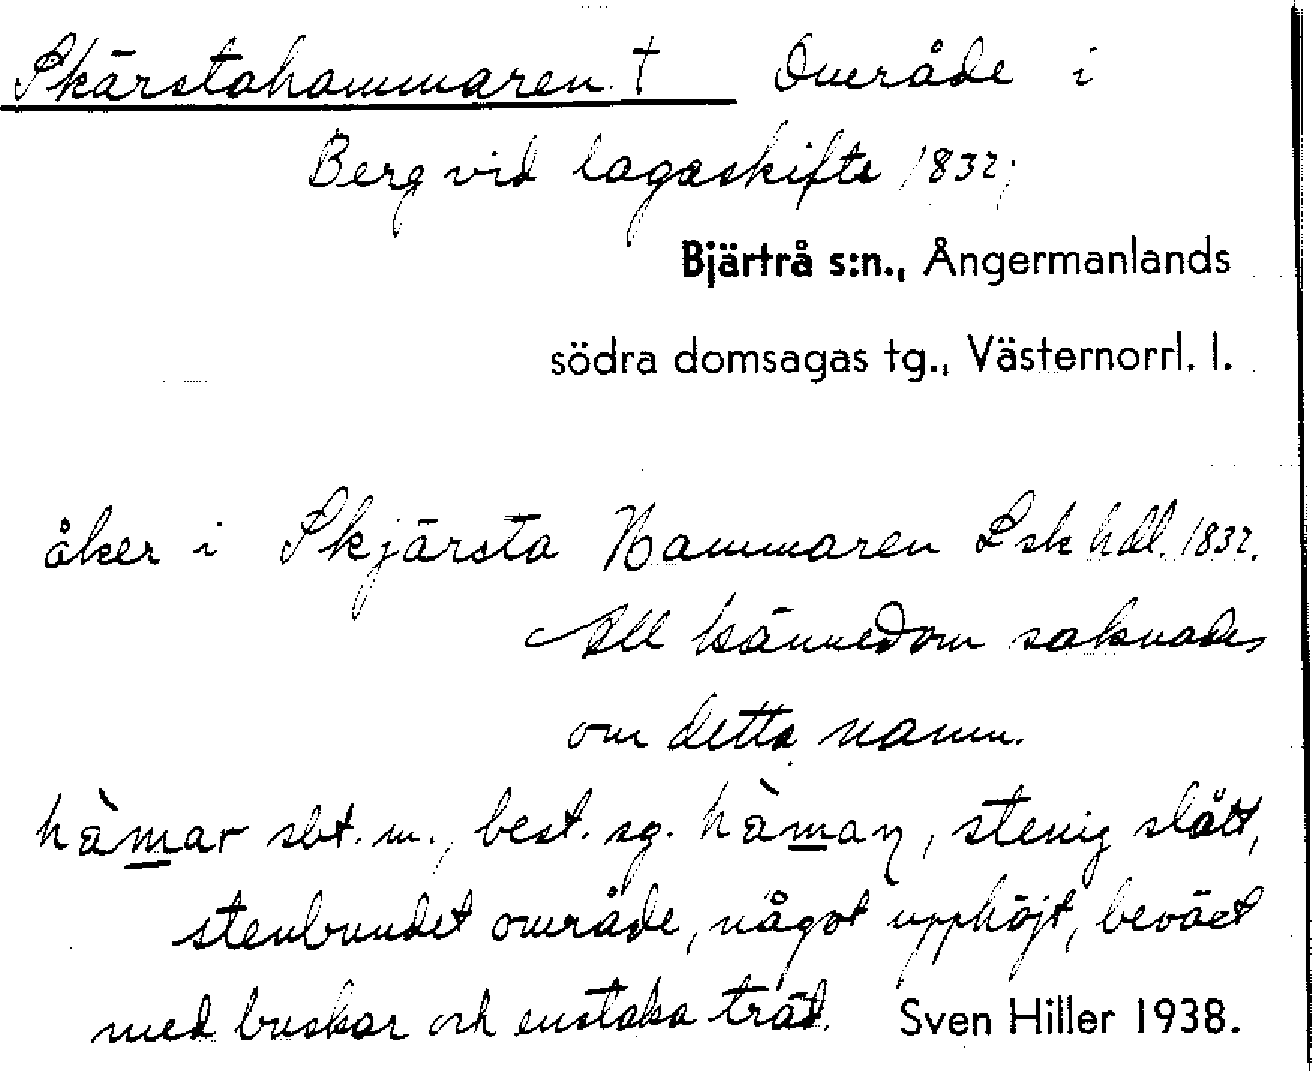 Skärstahammaren † Område i
Berg vid lagaskifte 1832;
Bjärtrå s:n., Ångermanlands
södra domsagas tg., Västernorrl. l.
åker i Skjärsta Hammaren Lsk hdl. 1832.
All kännedom saknades
om detta namn.
hàmar sbt. m., best. sg. hàmaɳ, stenig slått,
stenbundet område, något upphöjt, beväxt
med buskar och enstaka träd. Sven Hiller 1938.